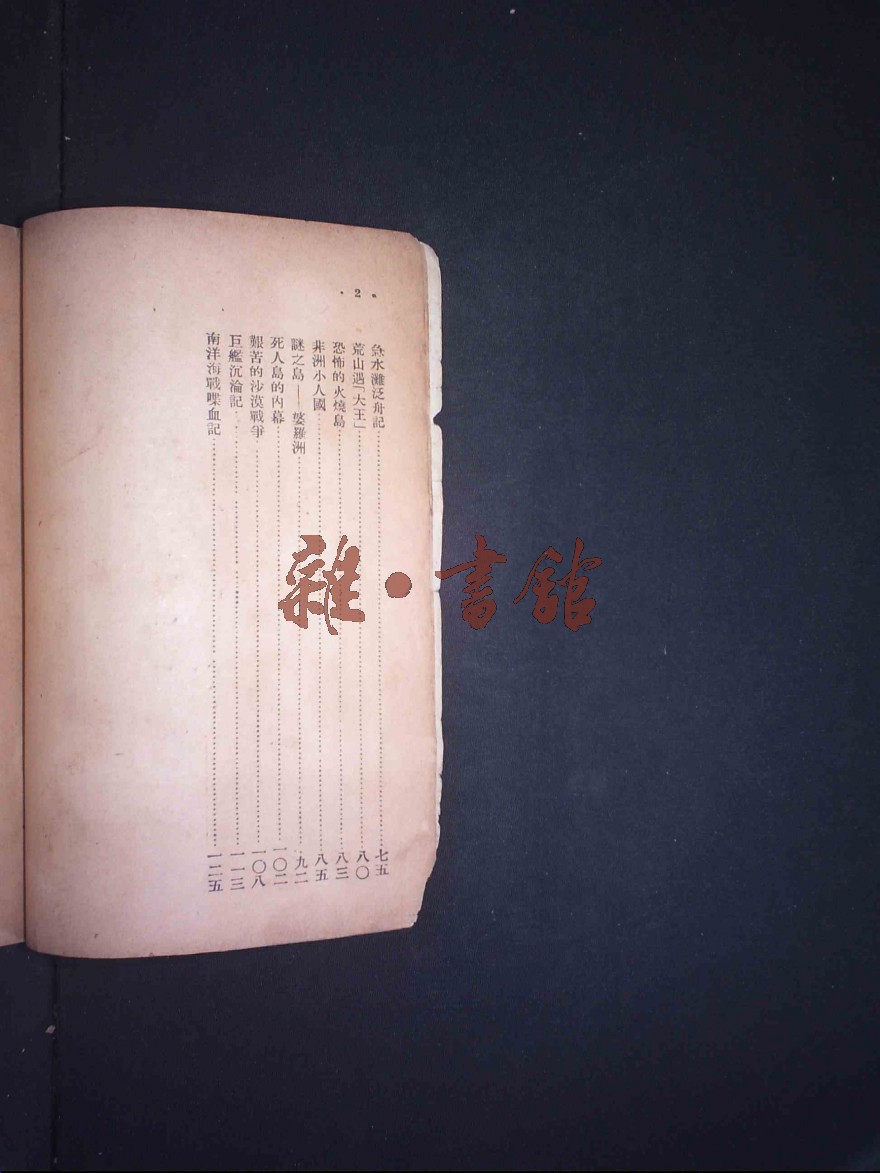 • 2 •
急水灘泛舟記……七五
荒山遇「大王」……八〇
恐怖的火燒島……八三
非洲小人國……八五
謎之島——婆羅洲……九二
死人島的內幕……一〇二
艱苦的沙漠戰爭……一〇八
巨艦沉淪記……一一三
南洋海戰喋血記……一二五
雜・書館